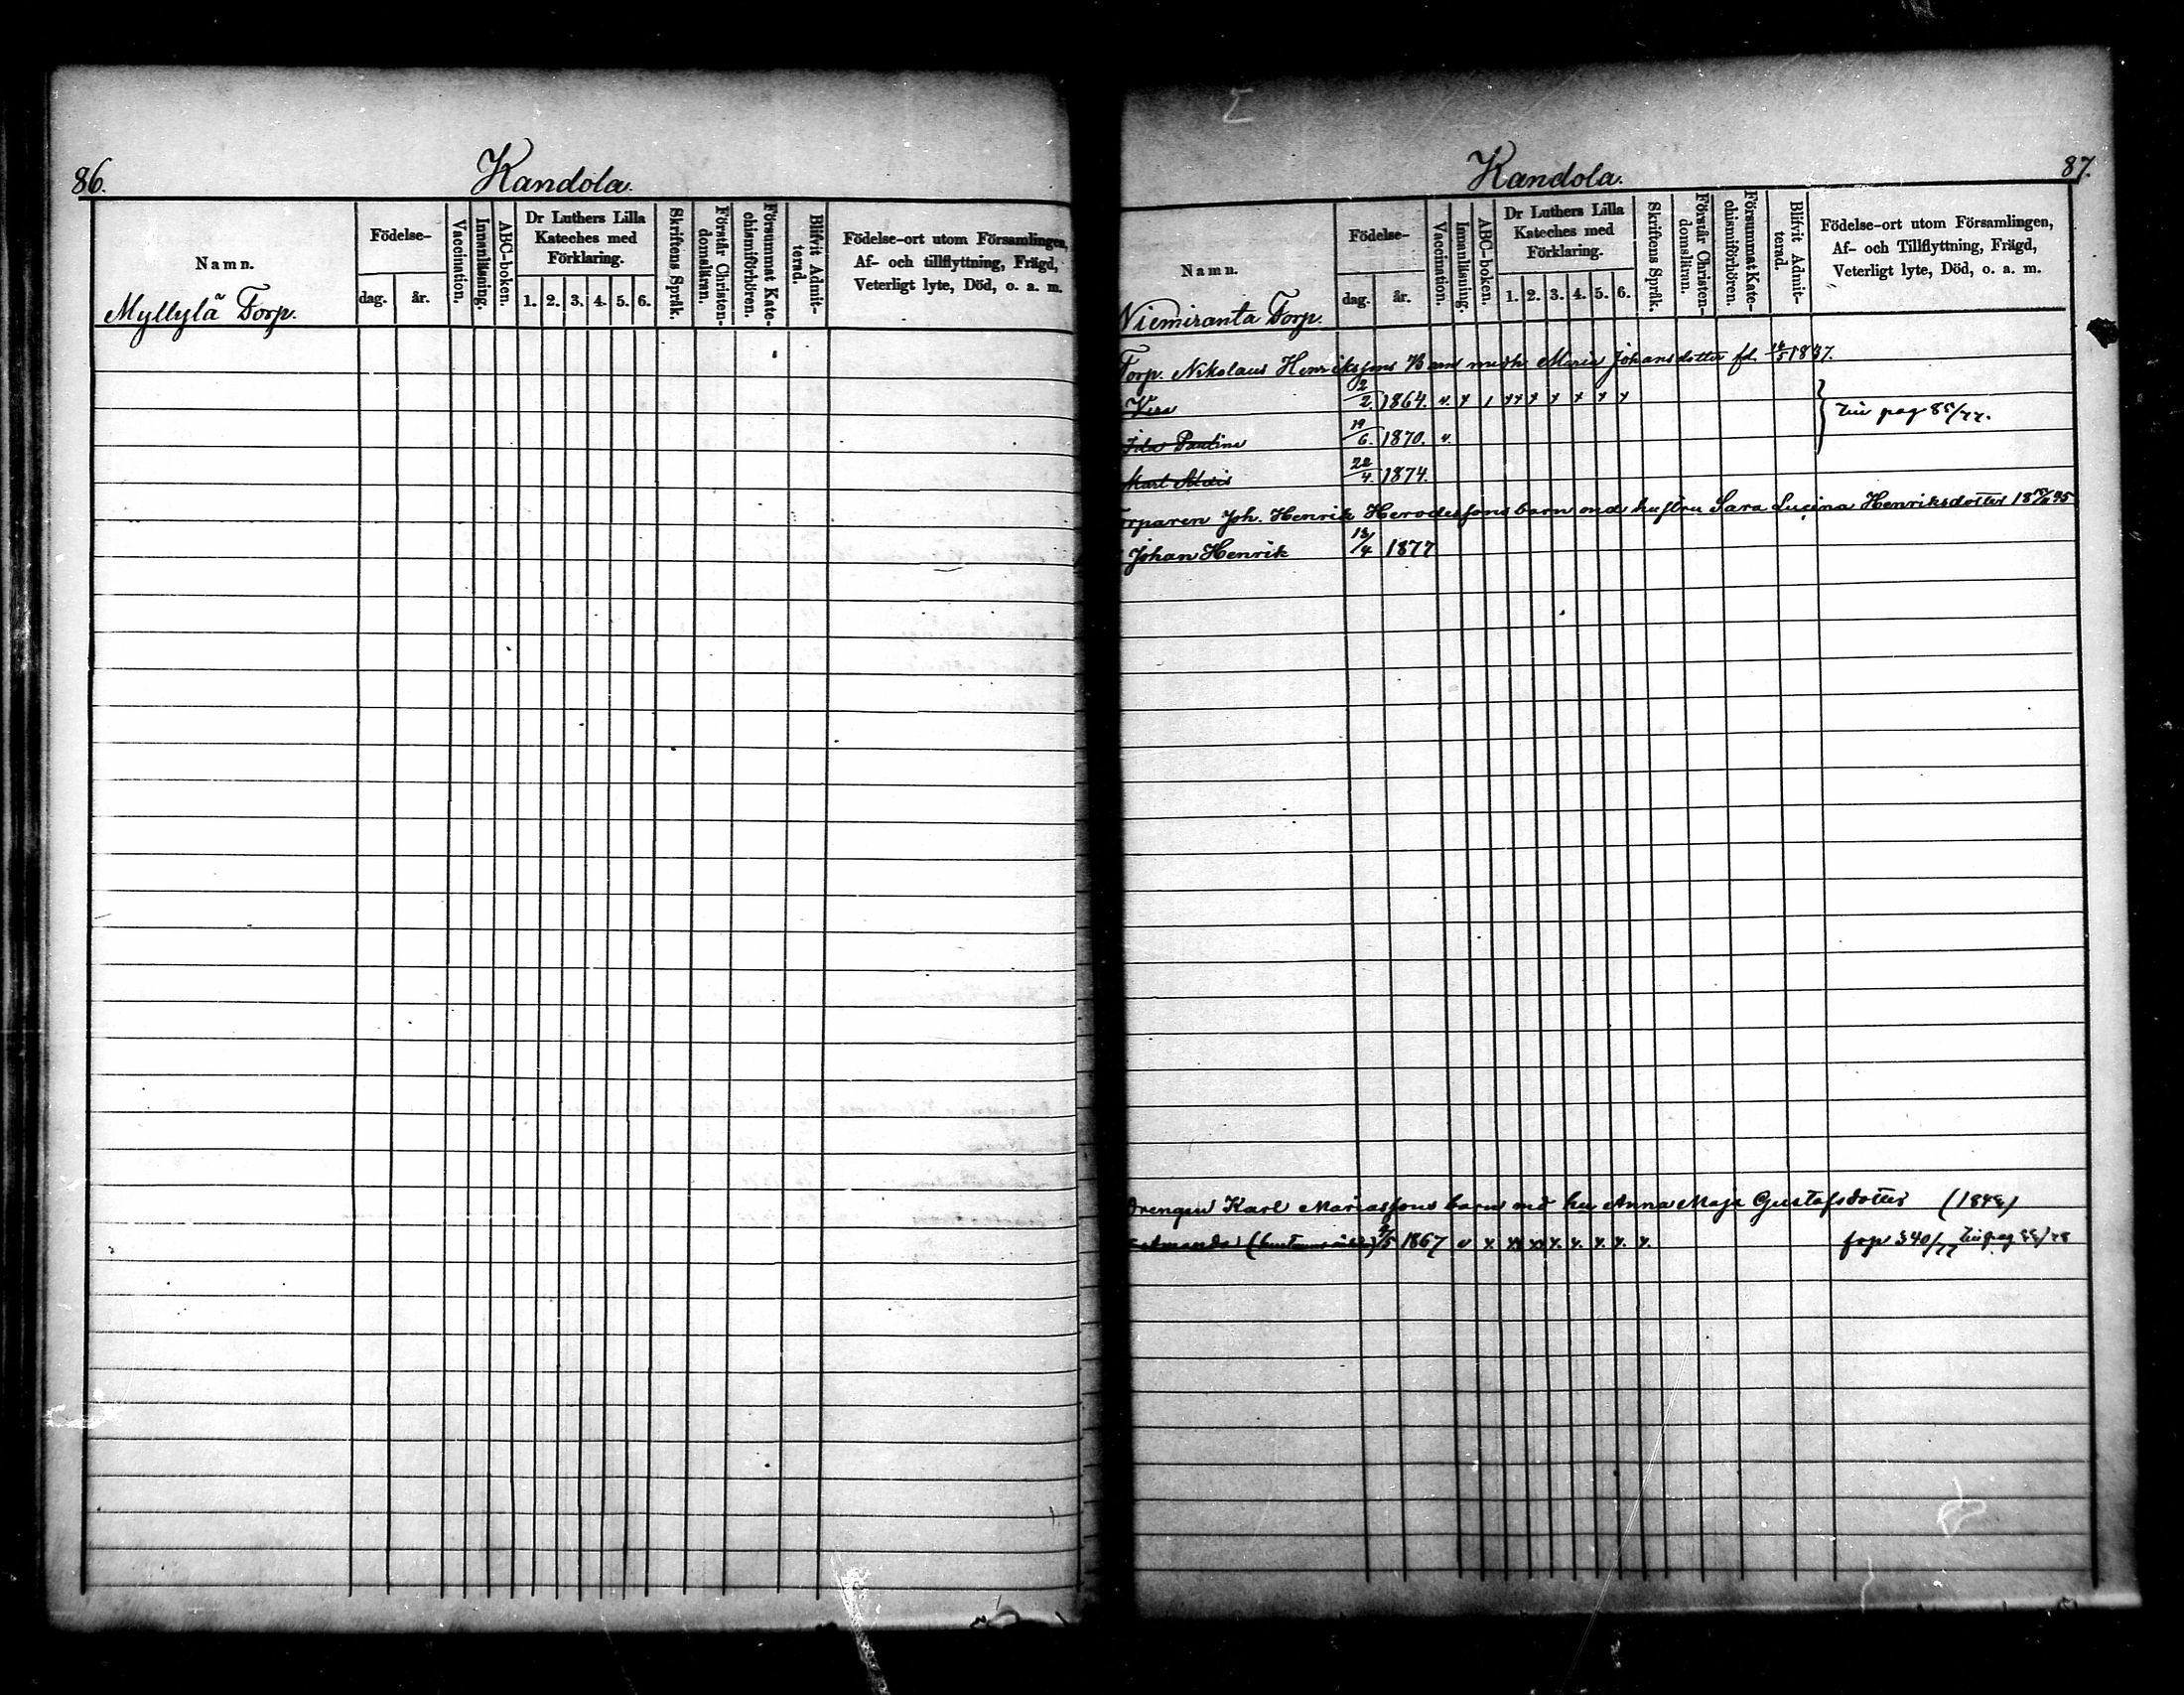 86.
Kandola.
Namn.
Födelse-
dag. år.
Vaccination.
Innanläsning.
ABC-boken.
Dr Luthers Lilla
Kateches med
Förklaring.
1. 2. 3. 4. 5. 6.
Skriftens Språk.
Förstår Christen-
domsläran.
Försummat Kate-
chismiförhören.
Blifvit Admit-
terad.
Födelse-ort utom Församlingen,
Af- och tillflyttning, Frägd,
Veterligt lyte, Död, o. a. m.
Myllylä Torp.
87.
Kandola.
Namn.
Födelse-
dag. år.
Vaccination.
Innanläsning.
ABC-boken.
Dr Luthers Lilla
Kateches med
Förklaring.
1. 2. 3. 4. 5. 6.
Skriftens Språk.
Förstår Christen-
domsläran.
Försummat Kate-
chismiförhören.
Blifvit Admit-
terad.
Födelse-ort utom Församlingen,
Af- och Tillflyttning, Frägd,
Veterligt lyte, Död, o. a. m.
Niemiranta Torp.
Torp. Nikolaus Henrikssons Barn med h. Maria Johansdotter fd. 1837.
2/2. 1864. v. x 1 xx x x x x x
pag 85/77.
Ida Paulina 19/6. 1870. v.
22/4. 1874.
Torparen Joh. Henrik Herodessons barn med hustru Sara Lusina Henriksdotter
Johan Henrik 13/4 1877
Drengen Karl Mariassons barn med hu Anna Maja Gustafsdotter (1848)
Amanda 1867 v x xx xx x. x. x. x. x. frp 340/77